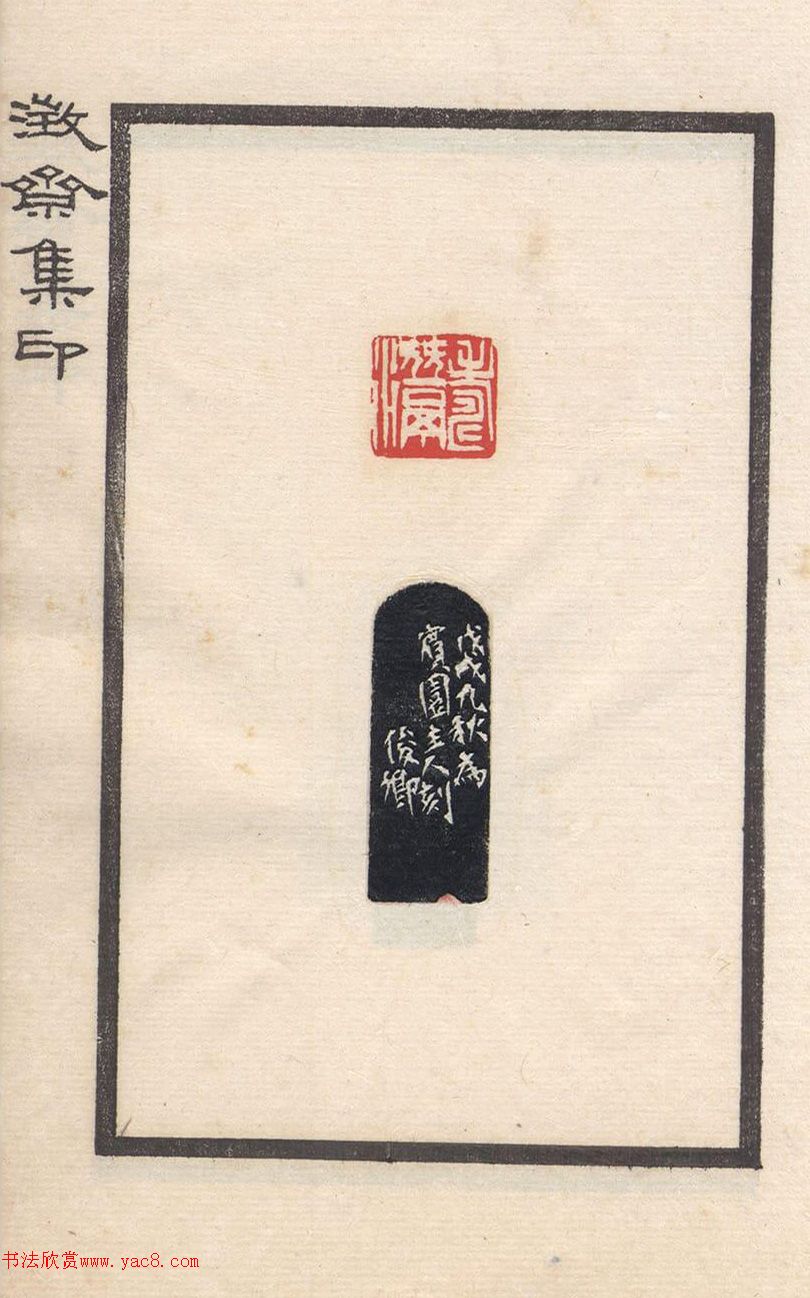 澂齋集印
戊戌九秋為
實園主人刻
俊卿
书法欣赏www.yac8.com